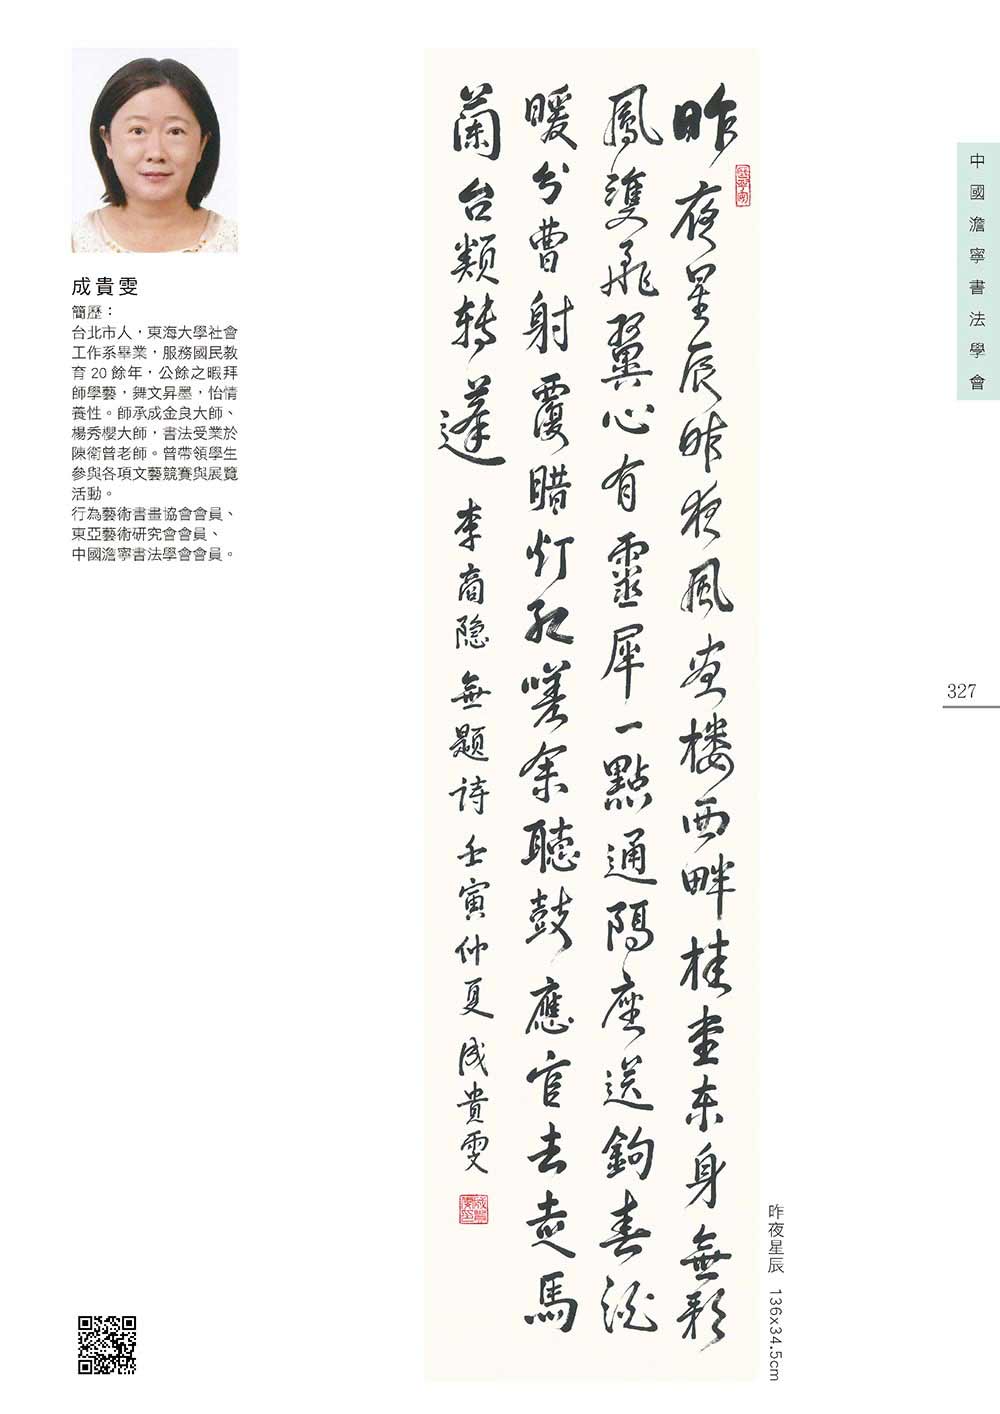 成貴雯
簡歷：
台北市人，東海大學社會
工作系畢業，服務國民教
育20餘年，公餘之暇拜
師學藝，舞文昇墨，怡情
養性。師承成金良大師、
楊秀櫻大師，書法受業於
陳衛曾老師。曾帶領學生
參與各項文藝競賽與展覽
活動。
行為藝術書畫協會會員、
東亞藝術研究會會員、
中國澹寧書法學會會員。
昨夜星辰昨夜風畫楼西畔桂堂东身無彩
鳳雙飛翼心有靈犀一點通隔座送鉤春酒
暖分曹射覆腊灯红嗟余聽鼓應官去走馬
蘭台類转蓬 李商隐無題诗壬寅仲夏成貴雯
昨夜星辰 136x34.5cm
中國澹寧書法學會
327